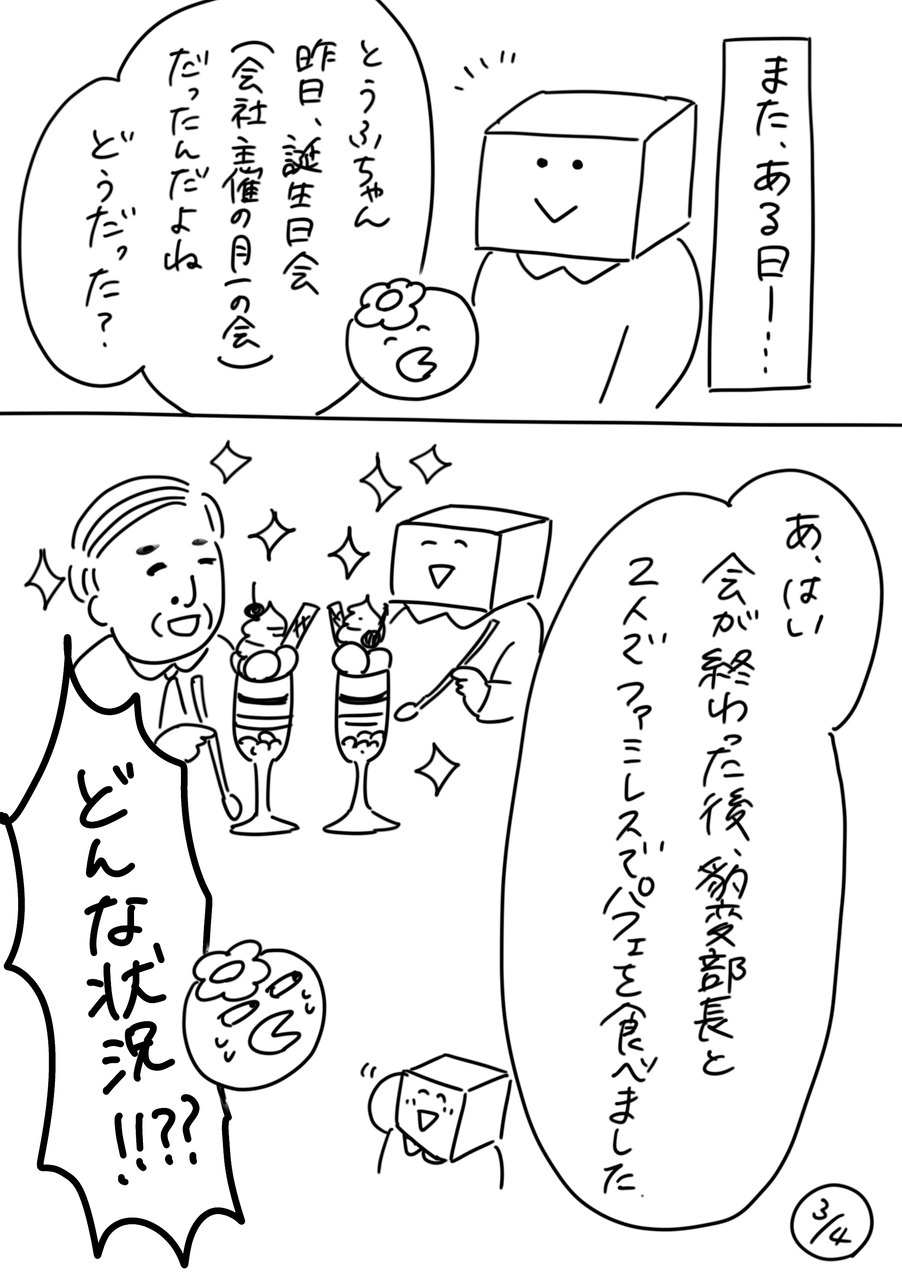 また、ある日ー…
とうふちゃん
昨日、誕生日会
(会社主催の月一の会)
だったんだよね
どうだった?
あ、はい
会が終わった後、豹変部長と
2人でファミレスでパフェを食べました
どんな状況!!??
3/4